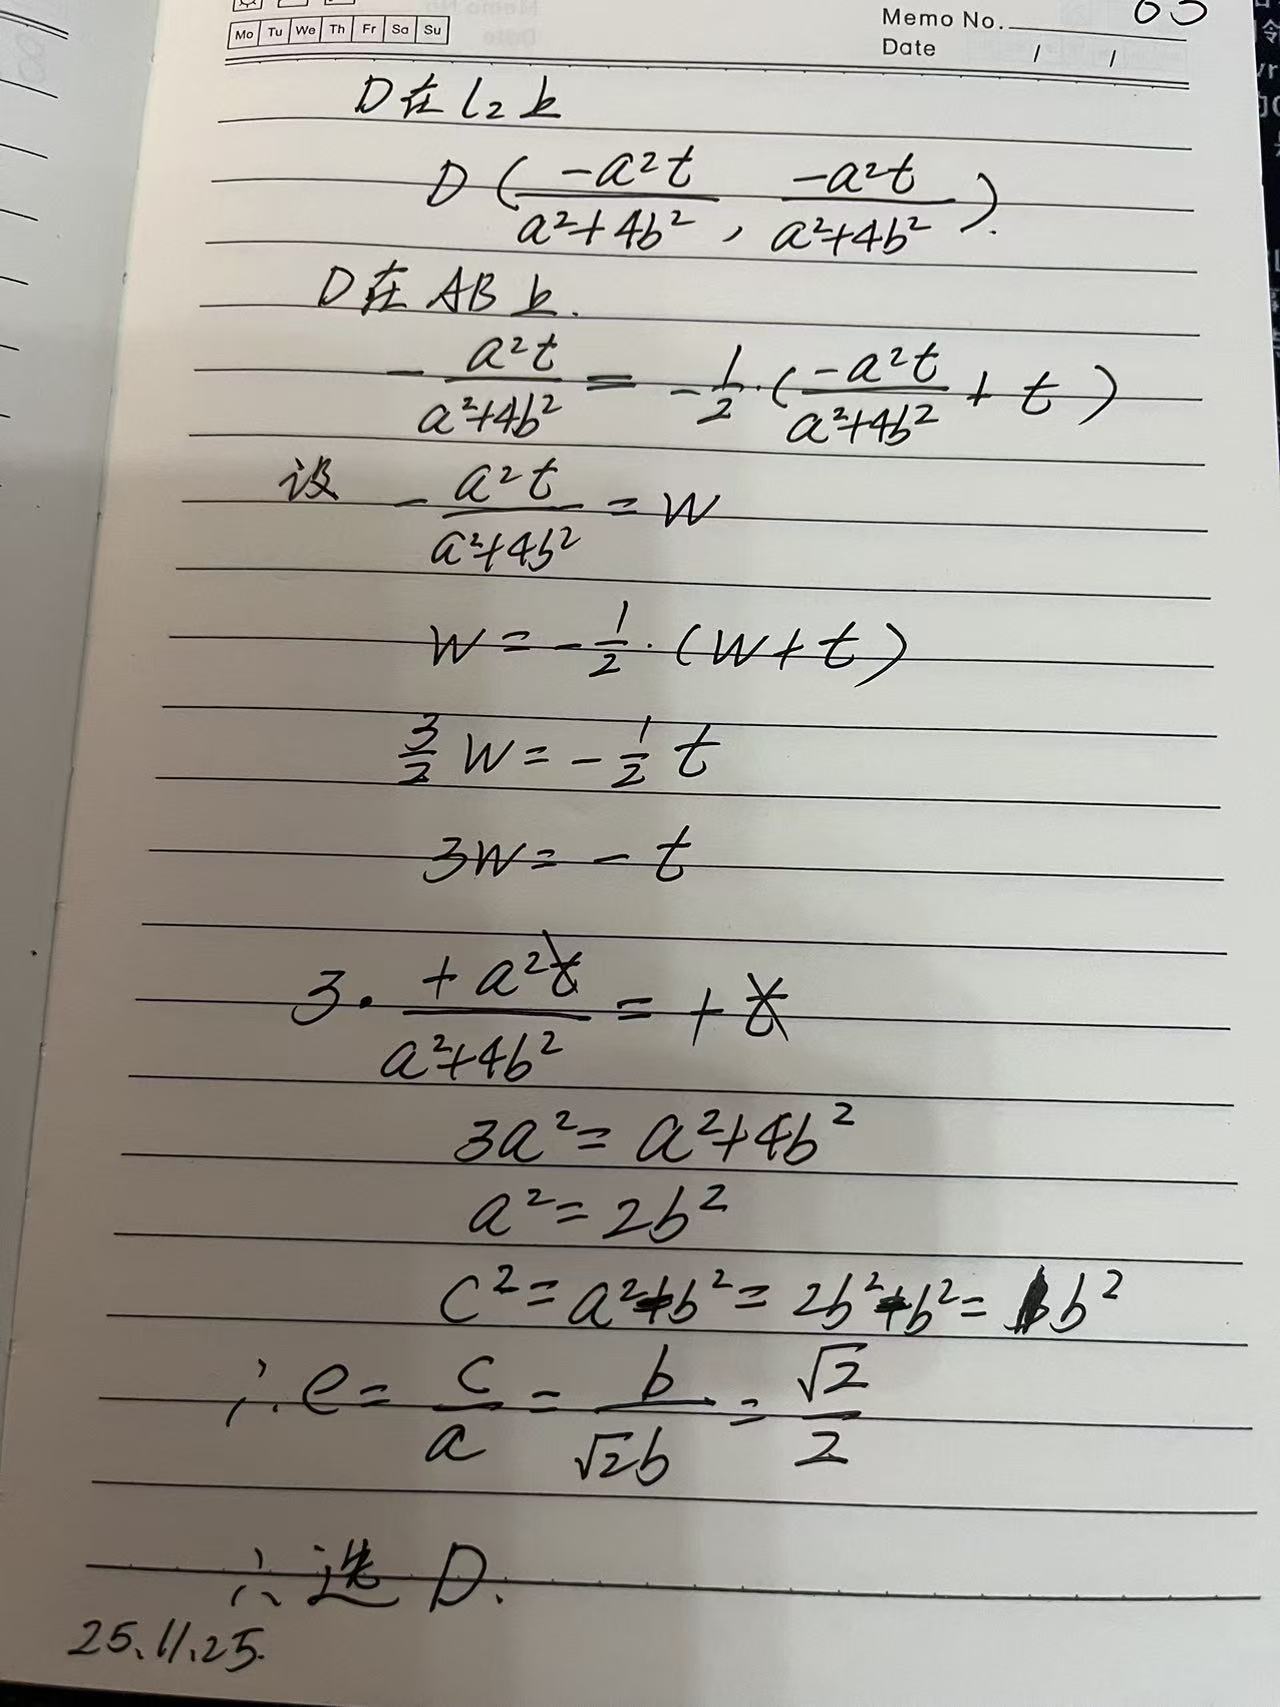 Mo Tu We Th Fr Sa Su
Memo No.
Date / /
D在l₂上
D(-a²t/(a²+4b²), -a²t/(a²+4b²)).
D在AB上.
-a²t/(a²+4b²) = -1/2·(-a²t/(a²+4b²) + t)
设 -a²t/(a²+4b²) = w
w = -1/2·(w+t)
3/2 w = -1/2 t
3w = -t
3·+a²t/(a²+4b²) = +t
3a² = a²+4b²
a² = 2b²
c² = a²-b² = 2b²-b² = b²
∴ e = c/a = b/√2b = √2/2
∴选D.
25.11.25.